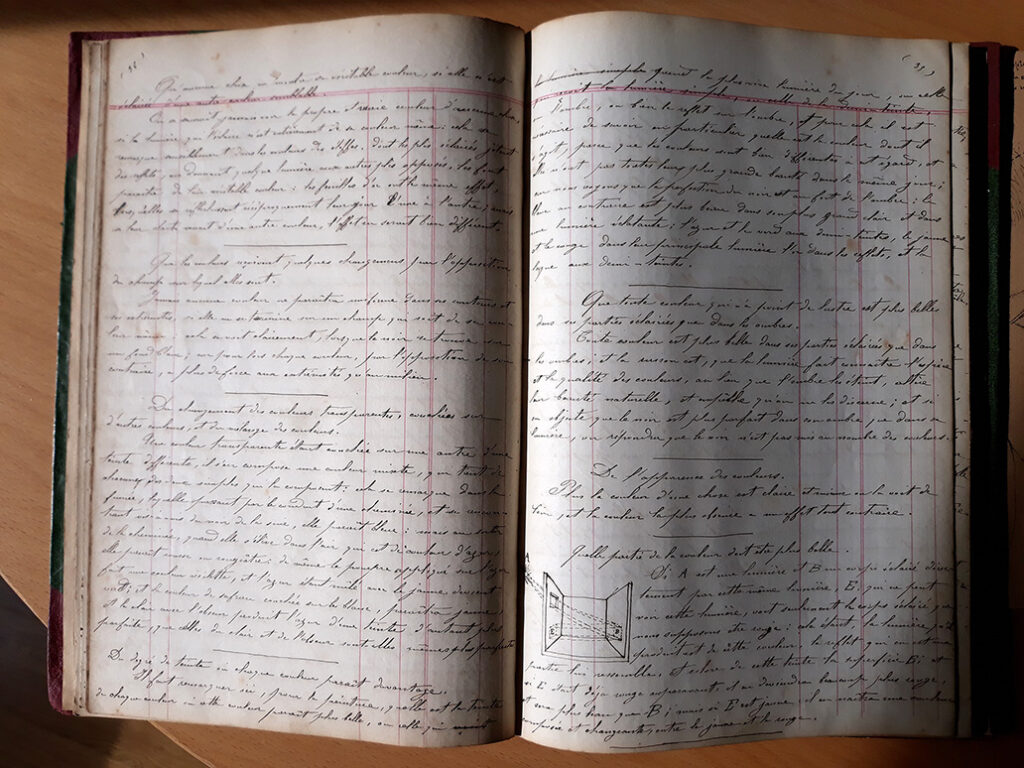 (38)
Qu'aucune chose ne montre sa véritable couleur, si elle n'est
éclairée d'une autre couleur semblable.
On ne saurait jamais voir la propre et vraie couleur d'aucune chose,
si la lumière qui l'éclaire n'est entièrement de sa couleur même : cela se
remarque sensiblement dans les couleurs des étoffes, dont les plis éclairés jettent
des reflets, ou donnent quelque lumière aux autres plis opposés, et les font
paraître de leur véritable couleur : les feuilles d'or ont le même effet,
lorsqu'elles se réfléchissent réciproquement leur jour l'une à l'autre ; mais
si leur clarté venait d'une autre couleur, l'effet en serait bien différent.
Que les couleurs reçoivent quelques changemens par l'opposition
du champ sur lequel elles sont.
Jamais aucune couleur ne paraîtra uniforme dans ses contours et
ses extrémités, si elle ne se termine sur un champ qui soit de sa cou-
leur même : cela se voit clairement, lorsque le noir se trouve sur
un fond blanc ; car pour lors chaque couleur, par l'opposition de son
contraire, a plus de force aux extrémités qu'au milieu.
Du changement des couleurs transparentes, couchées sur
d'autres couleurs, et du mélange des couleurs.
Une couleur transparente étant couchée sur une autre d'une
teinte différente, il s'en compose une couleur mixte, qui tient de
chacune des simples qui la composent : cela se remarque dans la
fumée, laquelle passant par le conduit d'une cheminée, et se rencon-
trant vis-à-vis du noir de la suie, elle paraît bleue ; mais au sortir
de la cheminée, quand elle s'élève dans l'air qui est de couleur d'azur,
elle paraît rousse ou rougeâtre : de même le pourpre appliqué sur l'azur
fait une couleur violette, et l'azur étant mêlé avec le jaune, devient
vert ; et la couleur de safran couchée sur le blanc, paraîtra jaune,
et le clair avec l'obscur produit l'azur d'une teinte d'autant plus
parfaite, que celles du clair et de l'obscur sont elles-mêmes plus parfaites.
Du degré de teinte où chaque couleur paraît davantage.
Il faut remarquer ici, pour la peinture, quelle est la teinte
de chaque couleur où cette couleur paraît plus belle, ou celle qui
(39)
la lumière simple
reçoit la lumière simple, ou celle de la demi-teinte,
l'ombre, ou bien le reflet sur l'ombre, et pour cela il est
nécessaire de savoir en particulier quelle est la couleur dont il
s'agit, parce que les couleurs sont bien différentes à cet égard, et
elles n'ont pas toutes leur plus grande beauté dans le même jour ;
car nous voyons que la perfection du noir est au fort de l'ombre : le
blanc au contraire est plus beau dans son plus grand clair et dans
une lumière éclatante ; l'azur et le vert aux demi-teintes, le jaune
et le rouge dans leur principale lumière, l'or dans les reflets, et la
laque aux demi-teintes.
Que toute couleur qui n'a point de lustre est plus belle
dans ses parties éclairées que dans les ombres.
Toute couleur est plus belle dans ses parties éclairées que dans
les ombres : et la raison est, que la lumière fait connaître l'espèce
et la qualité des couleurs, au lieu que l'ombre les éteint, altère
leur beauté naturelle, et empêche qu'on ne les discerne ; et si
on objecte que le noir est plus parfait dans son ombre que dans sa
lumière, on répondra que le noir n'est pas mis au nombre des couleurs.
De l'apparence des couleurs.
Plus la couleur d'une chose est claire et mieux on la voit de
loin, et la couleur la plus obscure a un effet tout contraire.
Quelle partie de la couleur doit être plus belle.
A
Si A est une lumière et B un corps éclairé direct-
tement par cette même lumière, E, qui ne peut
voir cette lumière, voit seulement le corps éclairé que
nous supposons être rouge : cela étant, la lumière qu'il
produit tient de cette couleur, le reflet qui en est une
partie lui ressemble, et colore de cette teinte la superficie E ; et
si E était déjà rouge auparavant, il en deviendra beaucoup plus rouge,
et sera plus beau que B ; mais si E est jaune, il en naîtra une couleur
composée et changeante, entre le jaune et le rouge.